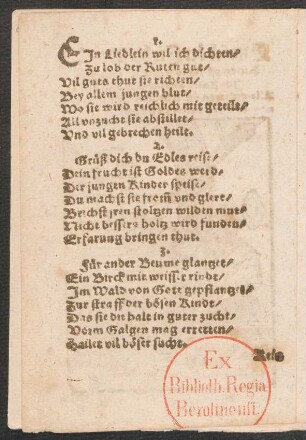 1.
EIn Liedlein wil ich dichten/
Zu lob der Ruten gut/
Vil guts thut sie richten/
Bey allem jungen blut/
Wo sie wird reichlich mit geteilt/
All vnzucht sie abstillet/
Vnd vil gebrechen heilt.
2.
Grüß dich du Edles reise/
Dein frucht ist Goldes werd/
Der jungen Kinder speise/
Du machst sie from̃ vnd glert/
Brichst jren stoltzen wilden mut/
Nicht bessers holtz wird funden/
Erfarung bringen thut.
3.
Für ander Beume glantzet/
Ein Birck mit weisser rinde/
Im Wald von Gott gepflantzet/
Zur straff der bösen Kinde/
Das sie die halt in guter zucht/
Vorm Galgen mag erretten/
Hailet vil böser sucht.
Ex
Biblioth. Regia
Berolinensi.